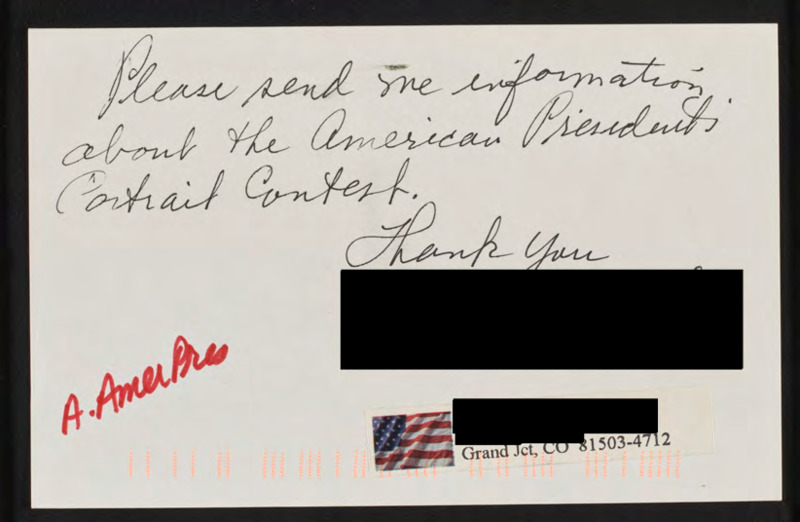 Please send me information
about the American Presidents
Portrait Contest.
Thank You
A. Amer Pres
Grand Jct, CO 81503-4712